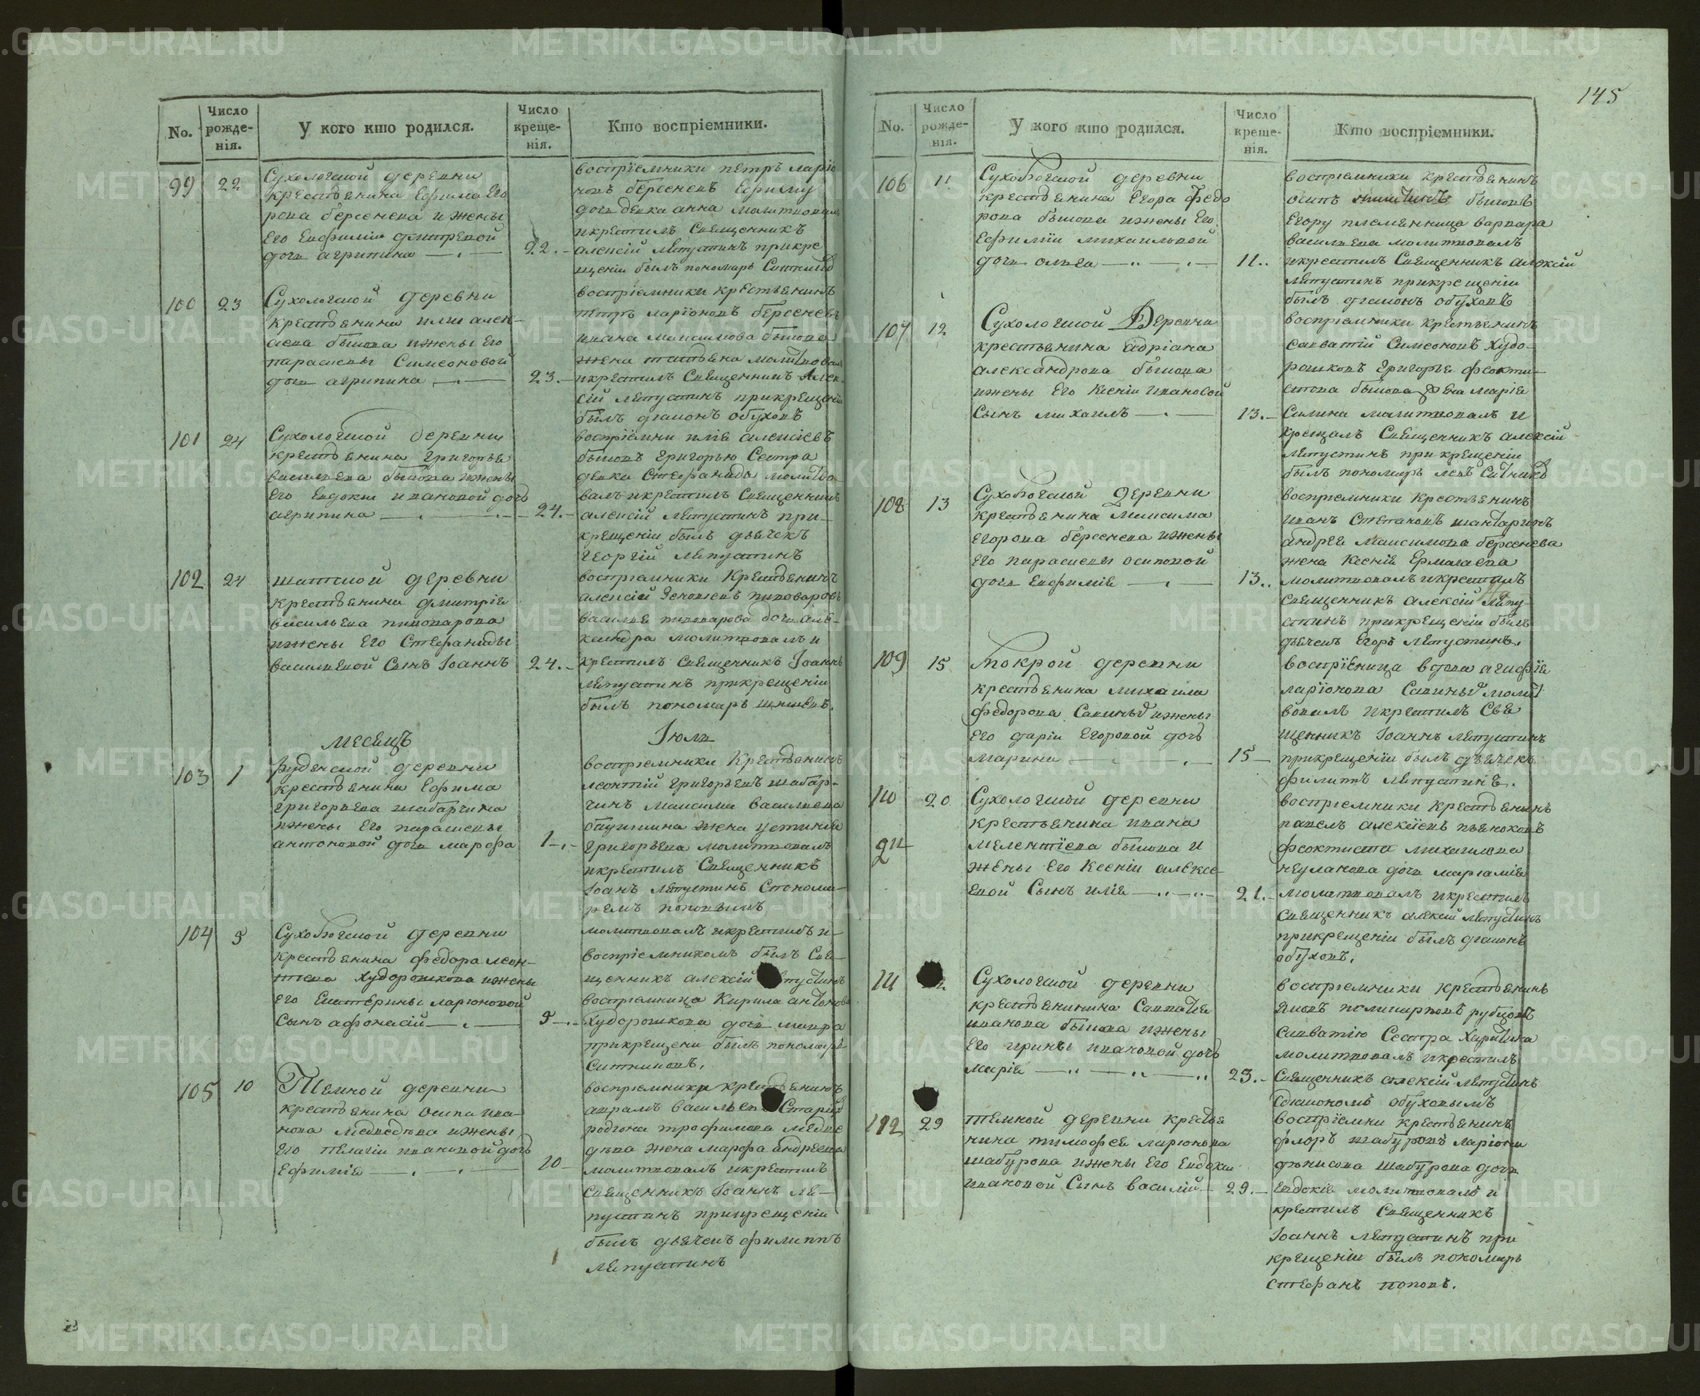 145
No.
Число рожде-нія.
У кого кто родился.
Число креще-нія.
Кто воспріемники.
99
22
Сухоложской деревни
крестьянина Ефима Его
рова берсенева и жены
Его Евфиміи дмитревой
дочь агрипина
22.
воспріемники петръ ларіо
новъ берсеневъ Ефиму
дочь девка анна молитвовалъ
и крестилъ Священникъ
алексій Лепустинъ при кре
щеніи былъ пономарь
100
23
Сухоложской деревни
крестьянина иліи алек-
сева бывова и жены Его
параскевы Симеоновой
дочь агрипина
23.
воспріемники крестьянинъ
петръ ларіоновъ берсеневъ
ивана максимова
жена татьяна
и крестилъ Священникъ Алек
сій Лепустинъ при крещеніи
былъ діаконъ обуховъ
101
24
Сухоложской деревни
крестьянина Григорья
васильева и жены
Его Евдокіи ивановой дочь
агрипина
24.
илія алексіевъ
Григорью Сестра
девка Стефанида
валъ и крестилъ Священникъ
алексій Лепустинъ при-
крещеніи былъ дьячекъ
Георгій Лепустинъ
102
24
шатской деревни
крестьянина дмитрія
васильева пивоварова
и жены Его Стефаниды
васильевой Сынъ Іоаннъ
24.
воспріемники крестьянинъ
алексій пивоваровъ
василья пивоварова дочь алек-
сандра молитвовалъ и
крестилъ Священникъ Іоаннъ
Лепустинъ при крещеніи
былъ пономарь
месяцъ
Іюль
103
1
рудянской деревни
крестьянина Ефима
григорьева шабарчина
и жены Его параскевы
антоновой дочь марфа
1
воспріемники крестьянинъ
леонтій григорьевъ шабар-
чинъ максима васильева
жена устинья
григорьева молитвовалъ
и крестилъ Священникъ
Іоанъ Лепустинъ С понома-
ремъ поповымъ
104
5
Сухоложской деревни
крестьянина федора леон-
тьева худорошкова и жены
Его Екатерины ларионовой
Сынъ афонасій
5
молитвовалъ и крестилъ и
воспріемникомъ былъ Свя-
щенникъ алексій Лепустинъ
воспріемница Кирила антонова
Худорошкова дочь мавра
при крещени былъ пономарь
Ситниковъ.
105
10
Темной деревни
крестьянина осипа ива-
нова Медведева и жены
Его пелагіи ивановой дочь
Ефимія
10
воспріемники крестьянинъ
аврамъ васильевъ
родиона трофимова медве
дева жена марфа андреева
молитвовалъ и крестилъ
Священникъ Іоаннъ Ле-
пустинъ при крещеніи
былъ дьячекъ филиппъ
Лепустинъ
No.
Число рожде-нія.
У кого кто родился.
Число креще-нія.
Кто воспріемники.
106
11
Сухоложской деревни
крестьянина Егора федо
рова бывова и жены Его
Ефиміи михаиловой
дочь ольга
11.
воспріемники крестьянинъ
осипъ бывовъ
Егору племенница варвара
васильева молитвовалъ
и крестилъ Священникъ алексій
Лепустинъ при крещеніи
былъ діаконъ обуховъ
107
12
Сухоложской Деревни
крестьянина адріана
александрова бывова
и жены Его Ксеніи ивановой
Сынъ михаилъ
13.
воспріемники крестьянинъ
савватій Симеоновъ худо-
рошковъ григорья феокти-
стова бывова дочь марія
молитвовалъ и
крещалъ Священникъ алексій
Лепустинъ при крещеніи
былъ пономарь левъ Ситников
108
13
Сухоложской деревни
крестьянина максима
Егорова берсенева и жены
Его параскевы осиповой
дочь Евфимія
13.
воспріемники крестьянинъ
иванъ Степановъ
андрея максимова берсенева
жена Ксенія Ермолаева
молитвовалъ и крестилъ
Священникъ алексій Лепу-
стинъ при крещеніи былъ
дьячекъ Егоръ Лепустинъ.
109
15
мокрой деревни
крестьянина михаила
федорова Савиныхъ и жены
Его дарьи Егоровой дочь
марина
15
воспріемница вдова агафія
ларіонова Савиныхъ молит
вовалъ и крестилъ Свя
щенникъ Іоаннъ Лепустинъ
при крещеніи былъ дьячекъ
филипъ Лепустинъ.
110
20
Сухоложской деревни
крестьянина ивана
мелентіева бывова и
жены Его Ксеніи алексе-
евой Сынъ илія
21.
воспріемники крестьянинъ
павелъ алексіевъ
феоктиста михаилова
дочь
молитвовалъ и крестилъ
Священникъ алексій Лепустинъ
при крещеніи былъ діаконъ
обуховъ.
111
Сухоложской деревни
крестьянина Савватія
иванова бывова и жены
Его ирины ивановой дочь
марія
23.
воспріемники крестьянинъ
яковъ поликарповъ рубцовъ
Савватію Сестра Харитина
молитвовалъ и крестилъ
Священникъ алексій Лепустинъ
С діакономъ обуховымъ
112
29
темной деревни кресть
нина тимофея ларионова
шабурова и жены Его Евдокіи
ивановой Сынъ василій
29.
крестьянинъ
флоръ шабуровъ ларіона
денисова шабурова дочь
Евдокія молитвовалъ и
крестилъ Священникъ
Іоаннъ Лепустинъ при
крещеніи былъ пономарь
Стефанъ поповъ.
METRIKI.GASO-URAL.RU